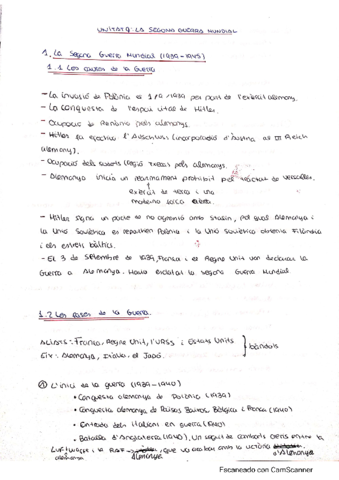 UNITAT 9: LA SEGONA GUERRA MUNDIAL
1. La Segona Guerra Mundial (1939-1945)
1.1 Les causes de la Guerra
- La invasió de Polònia es 1/9/1939 per part de l'exèrcit alemany.
- La conquesta de l'espai vital de Hitler.
- Ocupació de Renània pels alemanys.
- Hitler fa efectiva l'Anschluss (incorporació d'Àustria al III Reich
alemany).
- Ocupació dels sudets (regió txeca) pels alemanys.
- Alemanya inicia un rearmament prohibit pel tractat de Versalles.
exèrcit de terra i una
moderna força aèria.
- Hitler signa un pacte de no agressió amb Stalin, pel qual Alemanya i
la Unió Soviètica es reparteixen Polònia i la Unió Soviètica obtenia Finlàndia
i els estats bàltics.
- El 3 de setembre de 1939, França i el Regne Unit van declarar la
Guerra a Alemanya. Havia esclatat la Segona Guerra Mundial.
1.2 Les fases de la Guerra.
Aliats: França, Regne Unit, l'URSS i Estats Units
Eix: Alemanya, Itàlia, el Japó.
bàndols
A L'inici de la guerra (1939-1940)
• Conquesta alemanya de Polònia (1939)
• Conquesta alemanya de Països Baixos, Bèlgica i França (1940)
• Entrada dels italians en guerra (1940)
• Batalla d'Anglaterra (1940). Un seguit de combats aeris entre la
Luftwaffe i la RAF, que va acabar amb la
alemanya
d'Alemanya
Escaneado con CamScanner